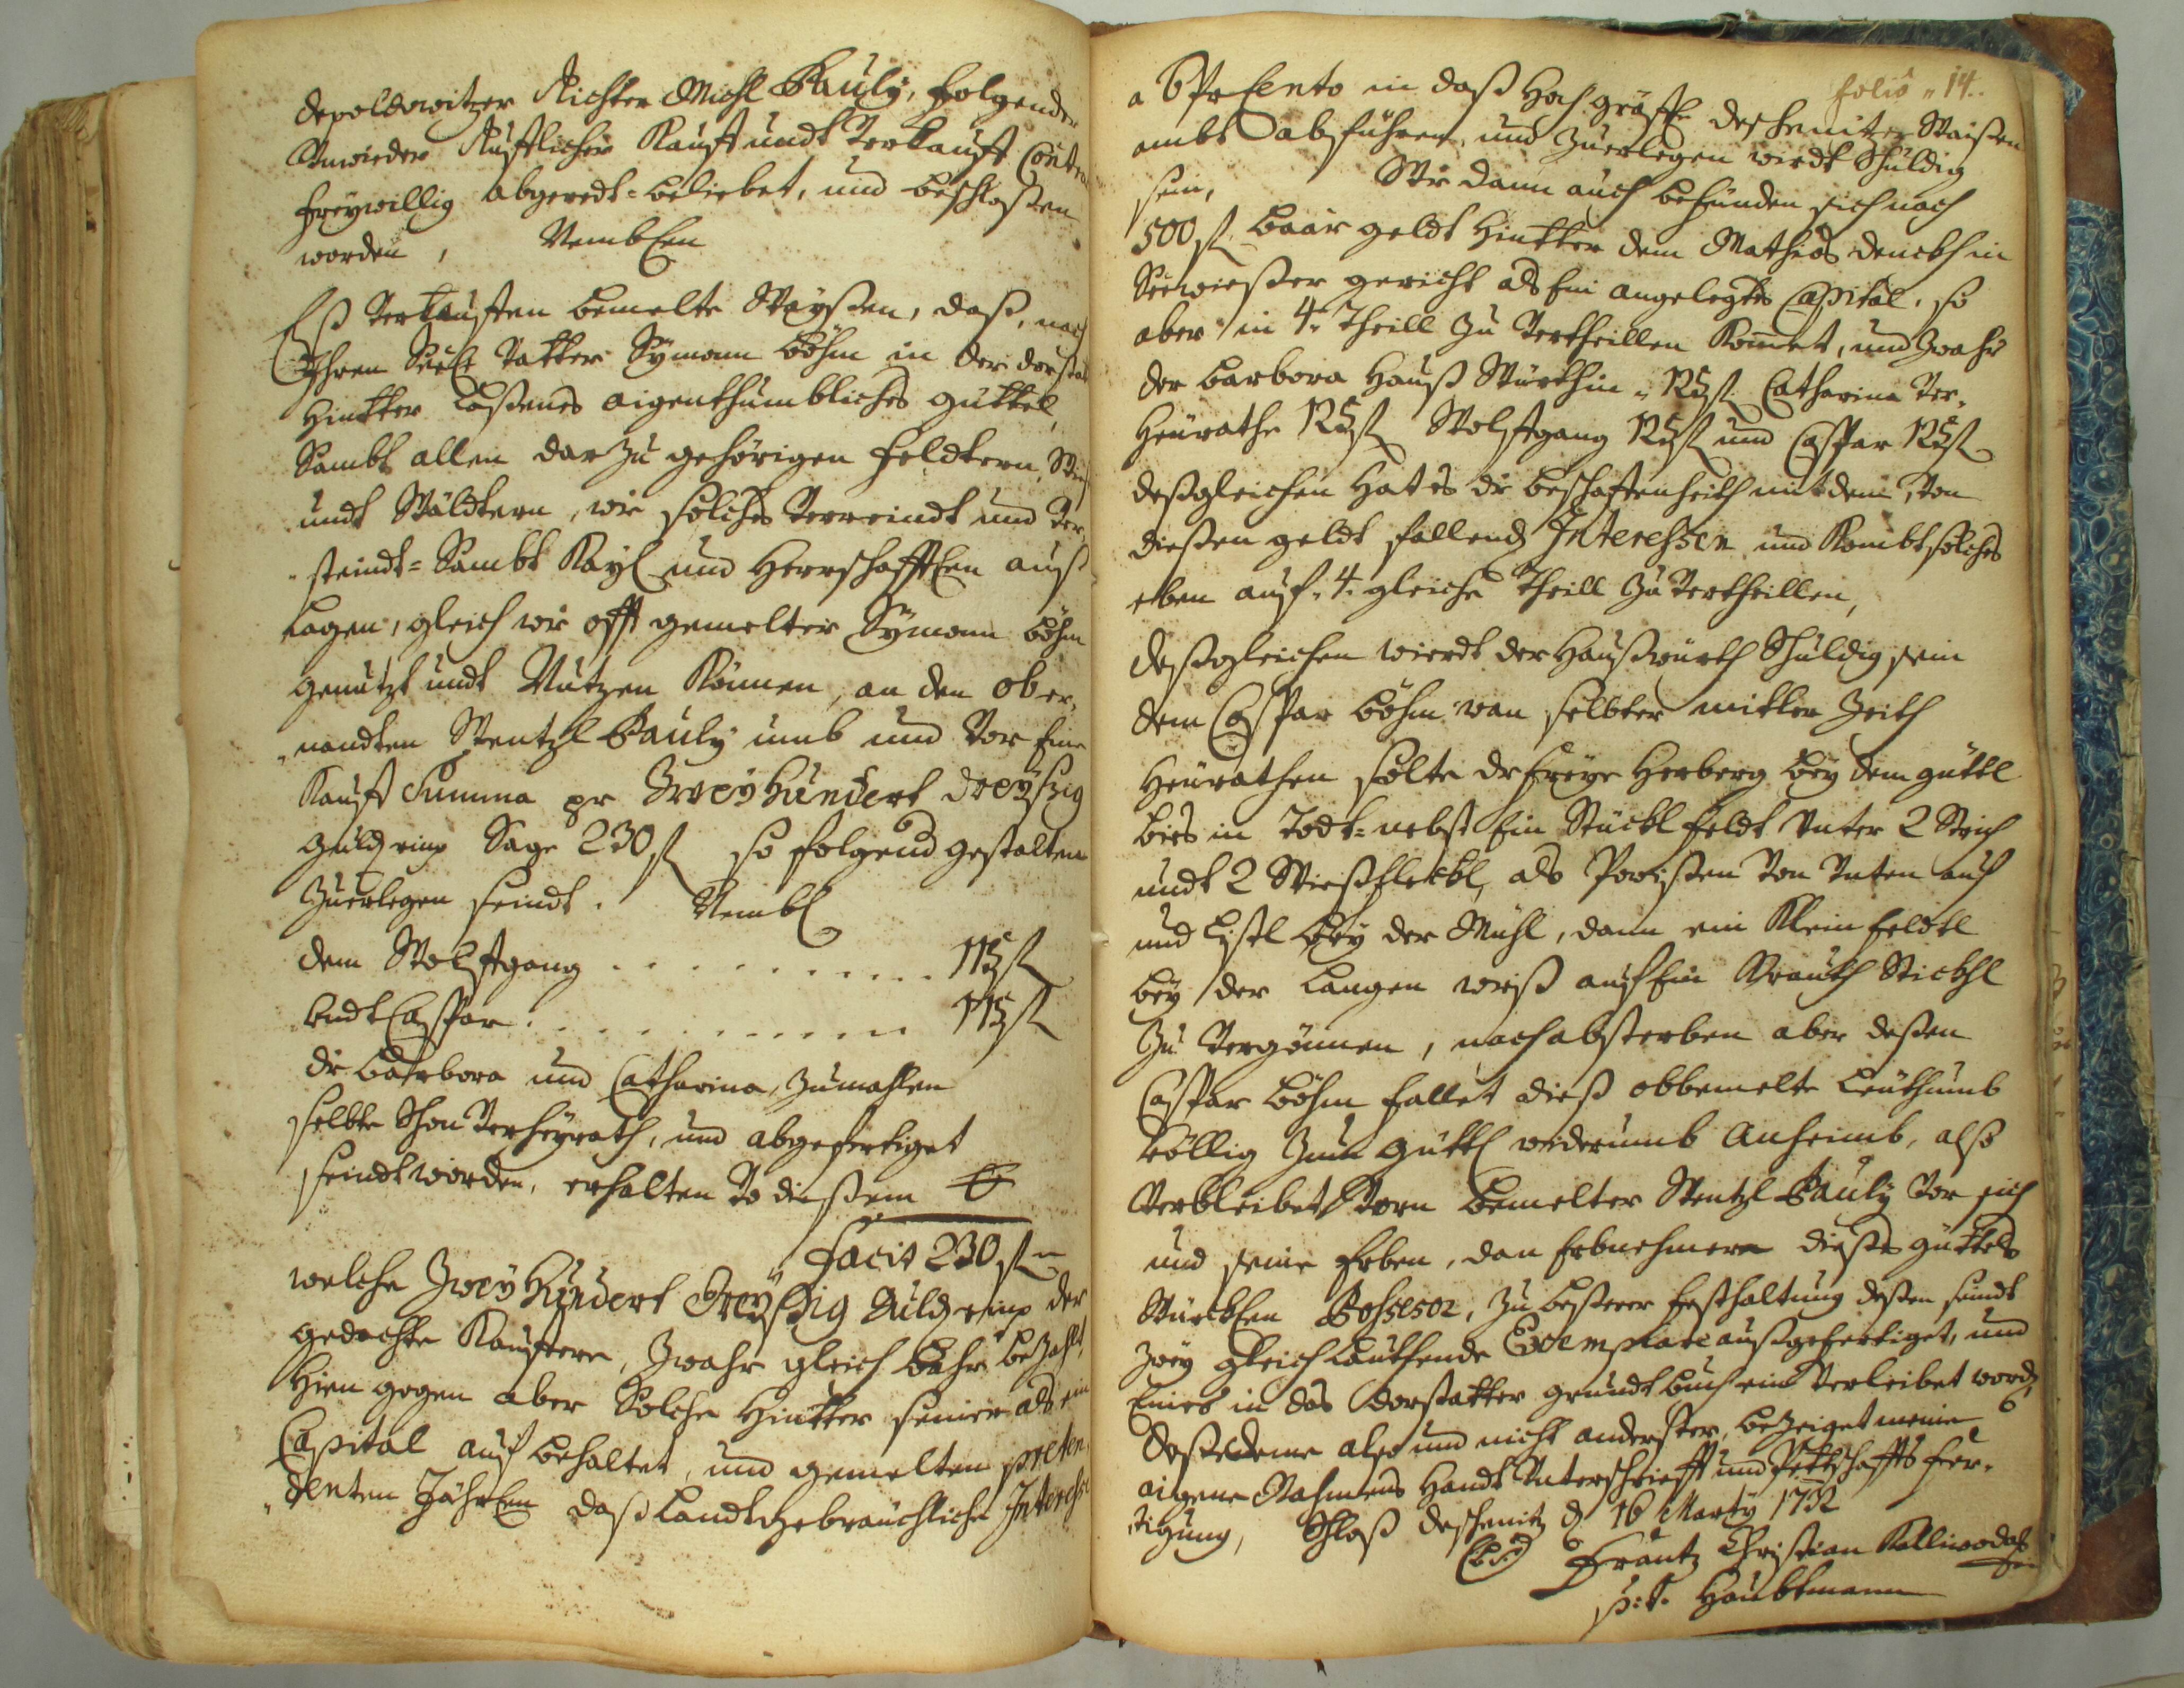 depoldowitzer Richter Michl Pauly, folgender
Unwieder Rufflicher Kauff undt Verkauff Contra
freywillig abgeredt= beliebet, und beschloßen
worden, Nembl.
Eß Verkauffen bemelte Waysen, daß, nach
Ihren Seel: Vatter Symonn Böhm in der dorstadt
hintterlaßenes aigenthumbliches güttel,
Sambt allen darzu gehörigen feldtern, Wies
undt Wäldtern, wie solches verreindt und ver-
steindt= Sambt Kayl: und Herrschafftlen auß
lagen, gleich wie offt gemelter Symonn Böhm
genutzt undt Nutzen Können, an den ober-
nandten Wentzl Pauly umb und vor Eine
Kauff Summa pr Zwey hundert dreyszig
guld reinß Sage 230 fl so folgend gestalten
zuerlegen seindt. Nembl:
dem Wolffgang . . . . . . . . . . 115 fl
undt Casspar . . . . . . . . . . . 115 fl
die Barbora und Catharina, zumahlen
selbte schon Verheyrath, und abgefertiget
seindt worden, erhalten Vo dießem
Facit 230 fl
welche Zwey Hundert Dreyszig Guld reinß der
gedachte Kauffere, zwahr gleich bahr bezahlt,
hien gegen aber Solche hintter seiner als ein
Capital auf behaltet, und gemelten preten-
denten Jährl: daß Landtgebräuchliche Interesse
folio 14.
a 6 Pr Cento in daß Hoch gräffl: deschenitzer Waißen
ambt abführen, und zuerlegen wirdt schuldig
sein, Wie dann auch befünden sich noch
500 fl baar geldt hintter dem Mathias denckh in
Seewießer gericht als Ein angelegtes Capital, so
aber in 4 Theill zu vertheillen Komet, und zwahr
der Barbora Hauß Würthin 125 fl. Catharina Ver-
heurathe 125 fl Wolffgang 125 fl und Casspar 125 fl
deßgleichen hat es die beschaffenheith mit dem, von
dießen geldt fallend Interessen und Kombt solches
eben auf 4 gleiche Theill zu vertheillen,
deßgleichen wierdt der Haußwürth schuldig sein
dem Casspar Böhm wan selbter mitler Zeith
Heürathen solte die freye Herberg bey dem güttl
bies in Todt= nebst Ein Stückl feldt unter 2 Strich
undt 2 Wießfleckhl, als Powißen von Vnten auf
und bey der Mühl, dann ein Klein feldtl
bey der Langen wieß auf Ein Krauth Stickhl
zu vergönnen, nach absterben aber deßen
Casspar Böhm fallet dieß obbemelte Leuthumb
völlig Zum güttl wiederumb Anheimb, also
Verbleibet Vorn bemelter Wentzl Pauly Vor sich
und seine Erben, dan Erbnehmern dießes güttels
Würckhl. Possesor, zu besterer festhaltung deßen seindt
zwey gleich lauthende Exemplare außgefertiget, und
Eines in das Dorstatter grundtbuch ein verleibet word,
Daßedeme also und nicht anderster, bezeiget meine
aigene Nahmens Handt Unterschriefft und Pettschaffts fier-
tigung, Schloß Deschenitz d. 16 Marty 1732
(L.S.) Frantz Christian Kalliwoda
p:t. Haubtmann